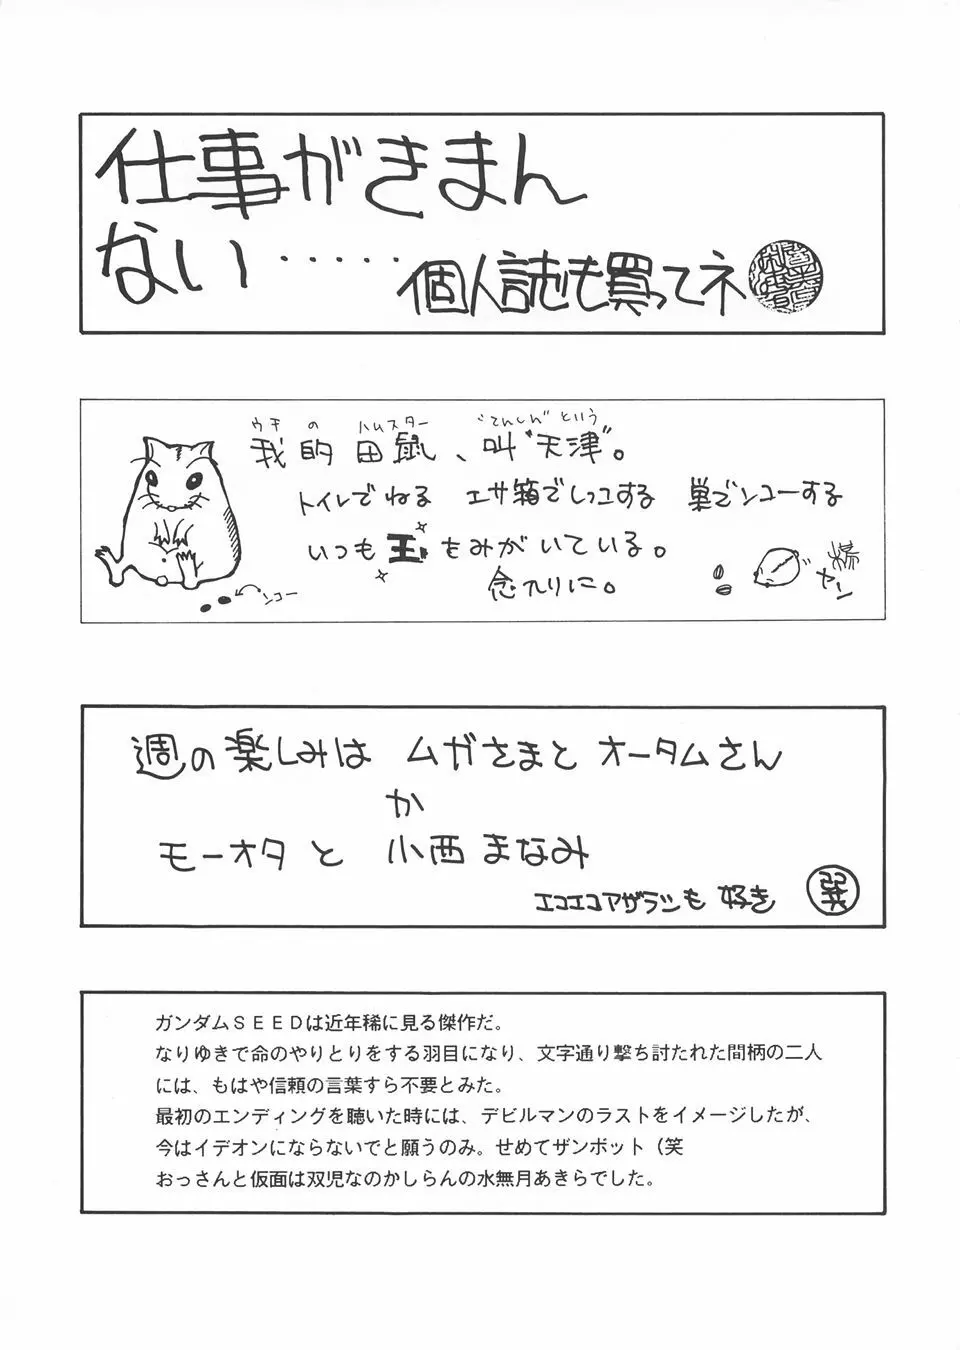 仕事がきまん
ない・・・・・個人誌も買ってネ
ウチ の ハムスター "てんしん" という
我的田鼠、叫"天津"。
トイレでねる エサ箱でしっコする 巣でンコーする
いつも玉をみがいている。
念入りに。
ンコー
ヤーン
週の楽しみは ムガさまと オータムさん
か
モーオタ と 小西 まなみ
エコエコアザラシも 好き
巽
ガンダムＳＥＥＤは近年稀に見る傑作だ。
なりゆきで命のやりとりをする羽目になり、文字通り撃ち討たれた間柄の二人
には、もはや信頼の言葉すら不要とみた。
最初のエンディングを聴いた時には、デビルマンのラストをイメージしたが、
今はイデオンにならないでと願うのみ。せめてザンボット（笑
おっさんと仮面は双児なのかしらんの水無月あきらでした。